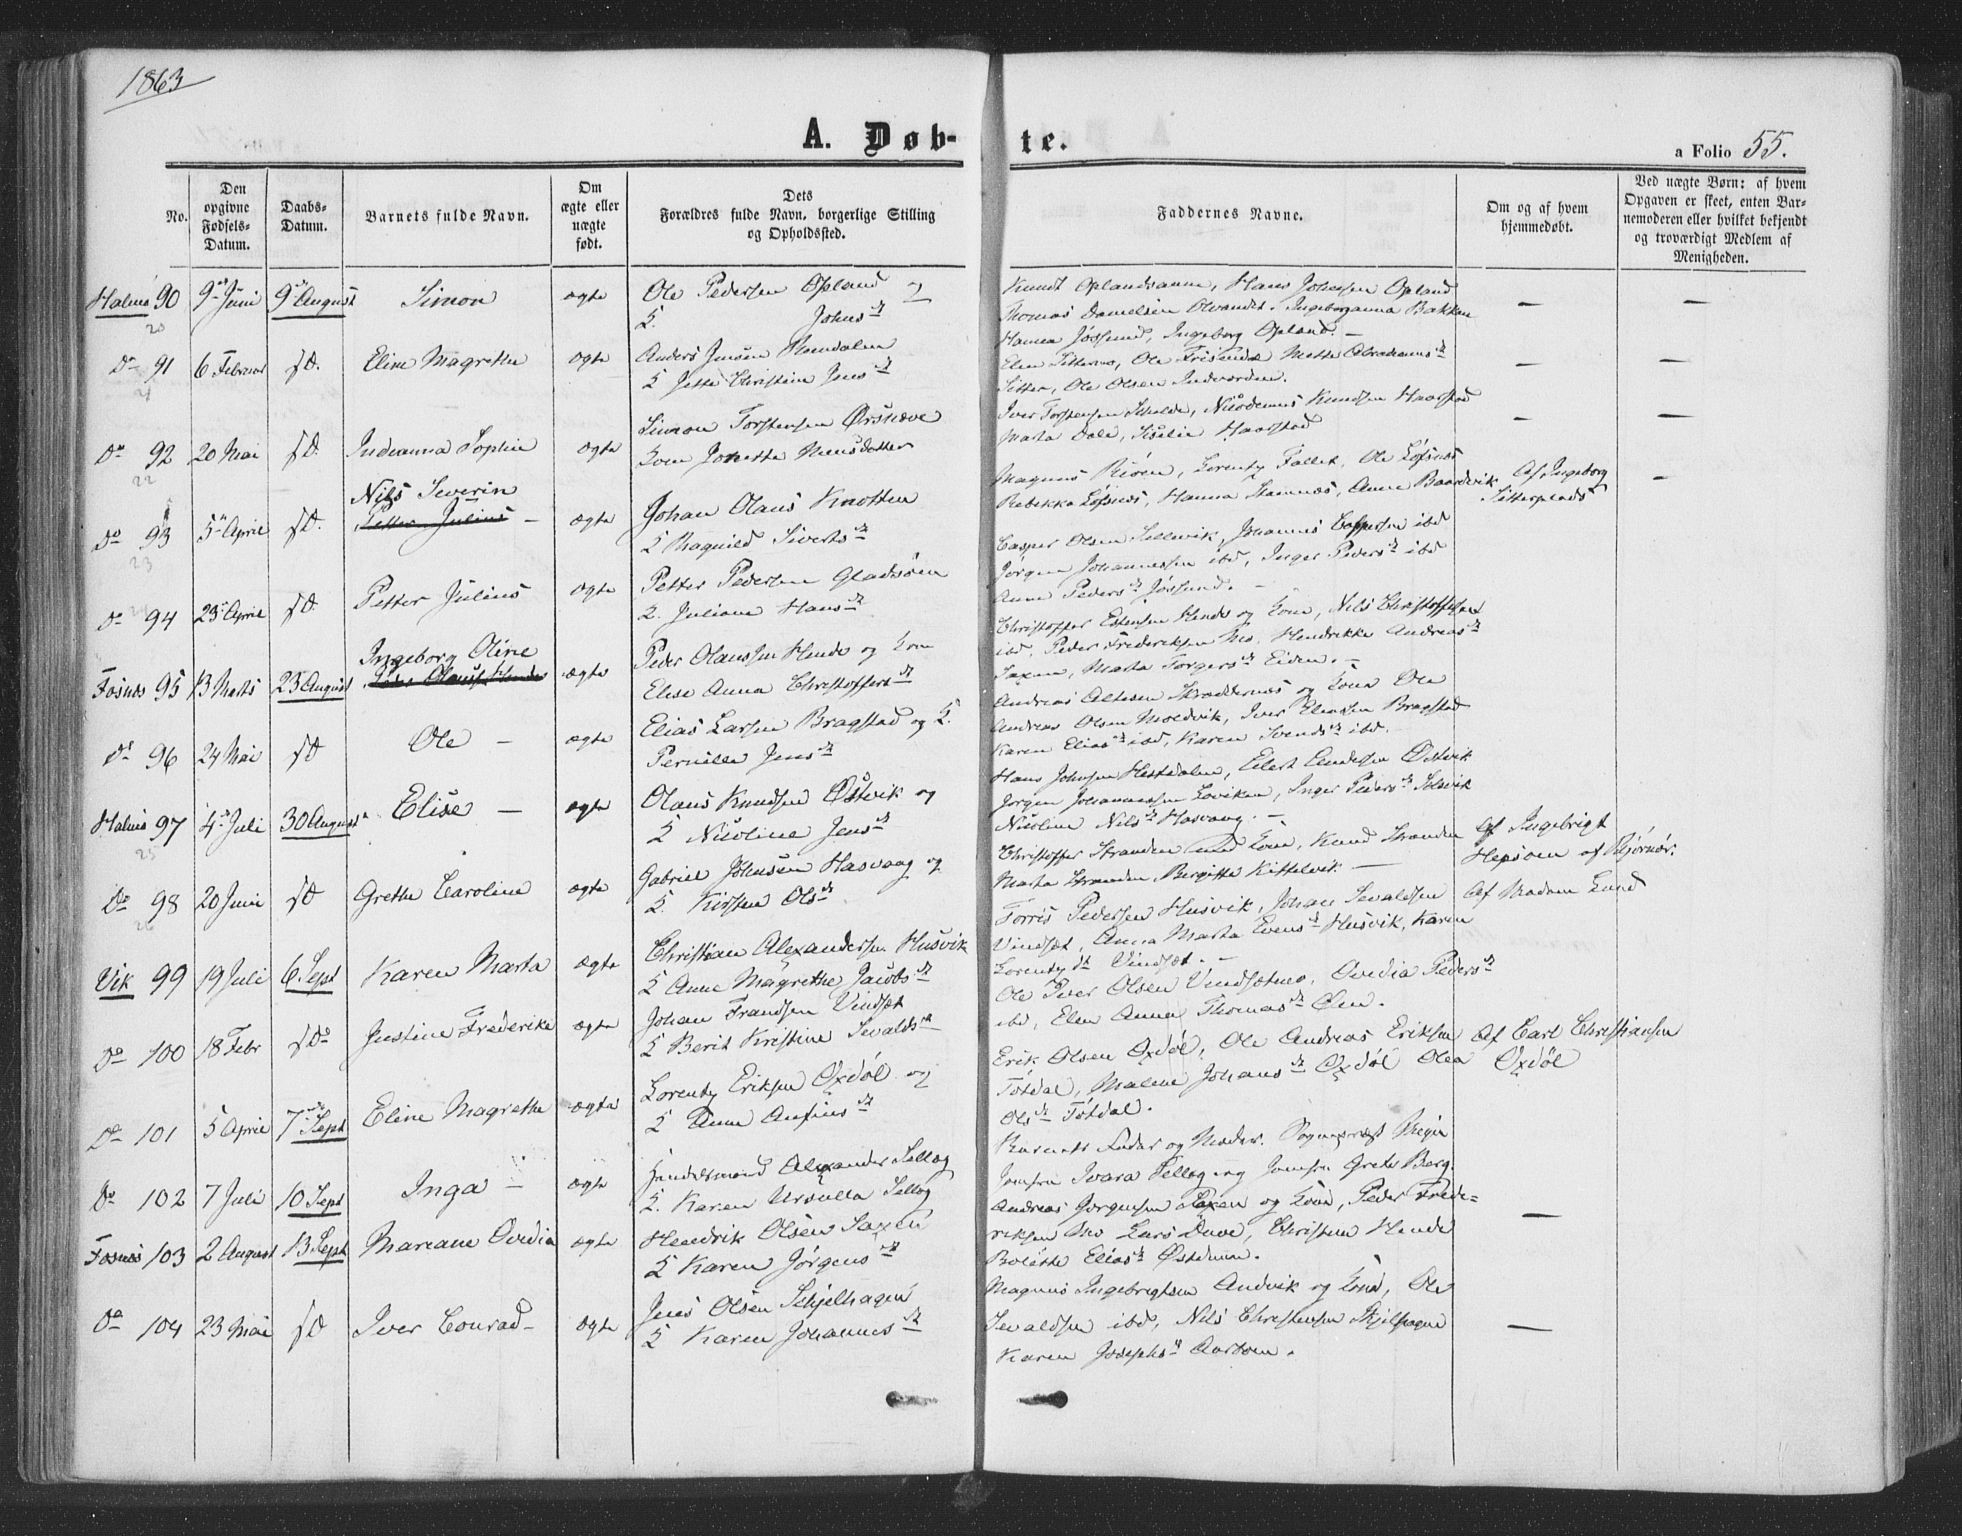 1863
A. Døb-
te.
a Folio 55.
No.
Den opgivne Fødsels-Datum.
Daabs-Datum.
Barnets fulde Navn.
Om ægte eller uægte født.
Dets Forældres fulde Navn, borgerlige Stilling og Opholdssted.
Faddernes Navne.
Om og af hvem hjemmedøbt.
Ved uægte Børn: af hvem Opgaven er skeet, enten Barnemoderen eller hvilket bekjendt og troværdigt Medlem af Menigheden.
Halmø 90 9de Juni 9de August Simon ægte Ole Pedersen Opland og
K. Johnsdt
Knudt Oplandsaunn, Hans Johnsen Opland
Thomas Danielsen Olvandt. Ingeborganna Bakken
Hanna Jøssund, Ingeborg Opland. —
Do 91 6 Februar sD. Eline Magrethe ægte Anders Jensen
K Jette Christine Jensdt
Sitter, Ole Olsen Indværden.
Do 92 20 Mai sD. Indianna Sophie ægte Simon Torstensen Ørsnæve
Kone Jonetta Monsdatter
Iver Torstensen, Nicodemus Knudsen Haarstad
Marta Dale, Siselie Haarstad
Do 93 5te April sD. Nils Severin
Petter Julius — ægte Johan Olaus Knotten
K Ragnild Sivertsdt
Magnus Biøen, Lorentz Fallet, Ole Løfsnæs
Rebekka Løfsnæs, Hanna Hamnæs, Anne Baardvik
Af Ingeborg
Sitterplads
Do 94 23 April sD. Petter Julius ægte Petter Pedersen Gladsøen
K. Juliane Hansdt
Casper Olsen Sellevik, Johannes Caspersen ibd
Jørgen Johannessen ibd, Inger Pedersdt ibd
Anne Pedersdt Jøssund. —
Fosnæs 95 13 Marts 23 August Ingeborg Oline ægte Peder Olaussen Hende og Kone
Elise Anna Christoffersdt
Christoffer Estensen Hende og Kone, Nils Christoffersen
ibd, Peder Frederiksen Mo, Hendrikke Andreasdt
Saxen, Marta Torgersdt Eiden. —
Do 96 24 Mai sD Ole — ægte Elias Larsen Bragstad og K.
Pernille Jensdt
Andreas Olsen Moldvik, Iver Eliassen Bragstad
Karen Eliasdt ibd, Karen Svendsdt ibd.
Halmø 97 4de Juli 30 August Elise — ægte Olaus Knudsen Østvik og
K Nicoline Jensdt
Hans Johnsen Hestdalen, Eilert Østvik
Jørgen Johannessen Loviken, Inger Pedersdt Solsvik
Nicoline Nilsdt Hasvaag. —
Do 98 20 Juni sD Grethe Caroline ægte Gabriel Johnsen Hasvaag og
K. Kirsten Olsdt
Christoffer Stranden med Kone, Knud Stranden
Marta Stranden, Birgitte Kittelvik —
Af Ingebrigt
Hepsøen af Bjørnør.
Vik 99 19 Juli 6 Sept Karen Marta ægte Christian Alexandersen Husvik
K Anne Magrethe Jacobsdt
Torris Pedersen Husvik, Johan Sevaldsen
Vindsæt, Anna Marta Evensdt Husvik, Karen
Lorentzdt Vindsæt. —
Af Madam Lund
Do 100 18 Febr sDo Justine Frederike ægte Johan Frandsen Vindsæt
K Berit Kristine Sevaldsdt
Ole Iver Olsen Vindsætmo, Ovidia Pedersdt
ibd, Elen Anna Thomasdt Øien.
Do 101 5 April 7de Sept Eline Magrethe ægte Lorentz Eriksen Oxdøl og
K Anne Anfinsdt
Erik Olsen Oxdøl, Ole Andreas Eriksen
Totdal, Malene Johansdt Oxdøl Olea
Olsdt Totdal.
Af Carl Christiansen
Oxdøl
Do 102 7 Juli 10 Sept Inga — ægte Handelsmand Alexander Sellæg
K. Karen Ursulla Sellæg
Barnets Fader og Moder. Sogneprest
Jomfru Ivara Sellæg og Jomfru Grete Berg.
Fosnæs 103 2 August 13 Sept Mariane Ovidia ægte Hendrik Olsen Saxen
K Karen Jørgensdt
Andreas Jørgensen Saxen og Kone, Peder Frede=
riksen Mo Lars Duve, Christine Hende
Bolette Eliasdt
Do 104 23 Mai sD Iver Conrad — ægte Jens Olsen Schjelhagen
K Karen Johannesdt
Magnus Ingebrigtsen Andvik og Kone, Ole
Sevaldsen ibd, Nils Christensen
Karen Josephsdt Aarsøen.